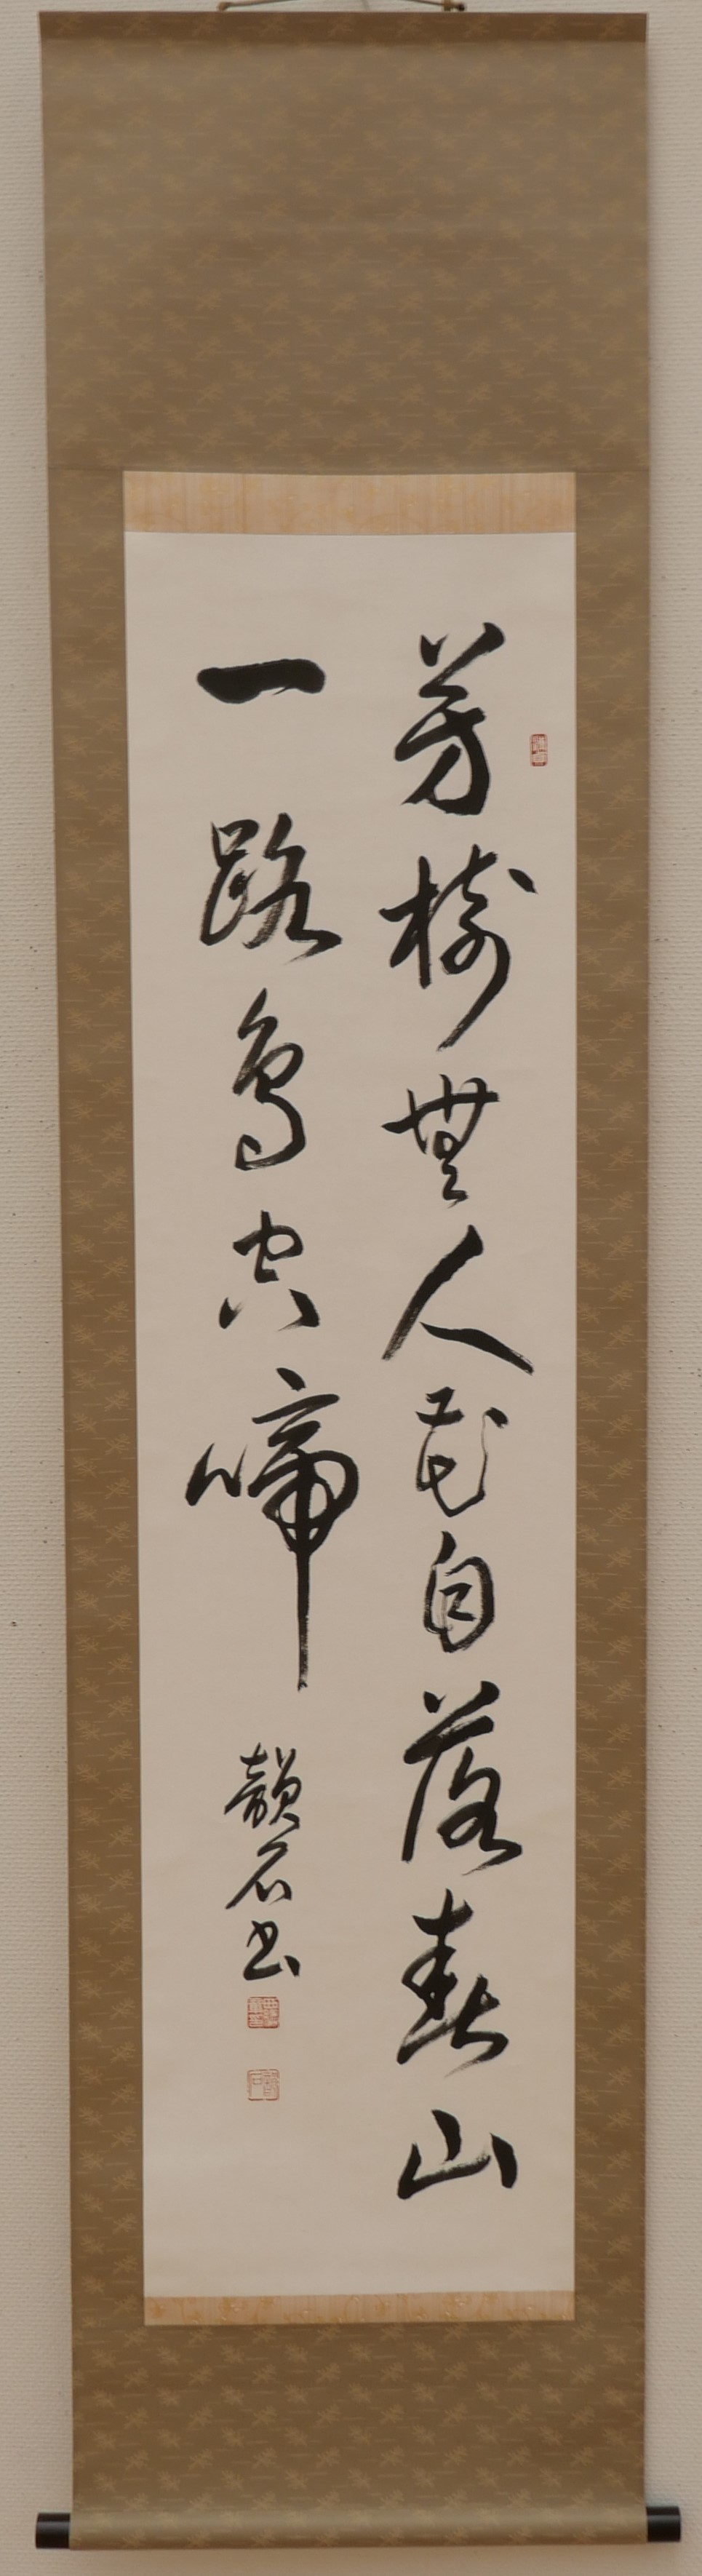 芳樹無人花自落春山
一路鳥空啼
韻石書